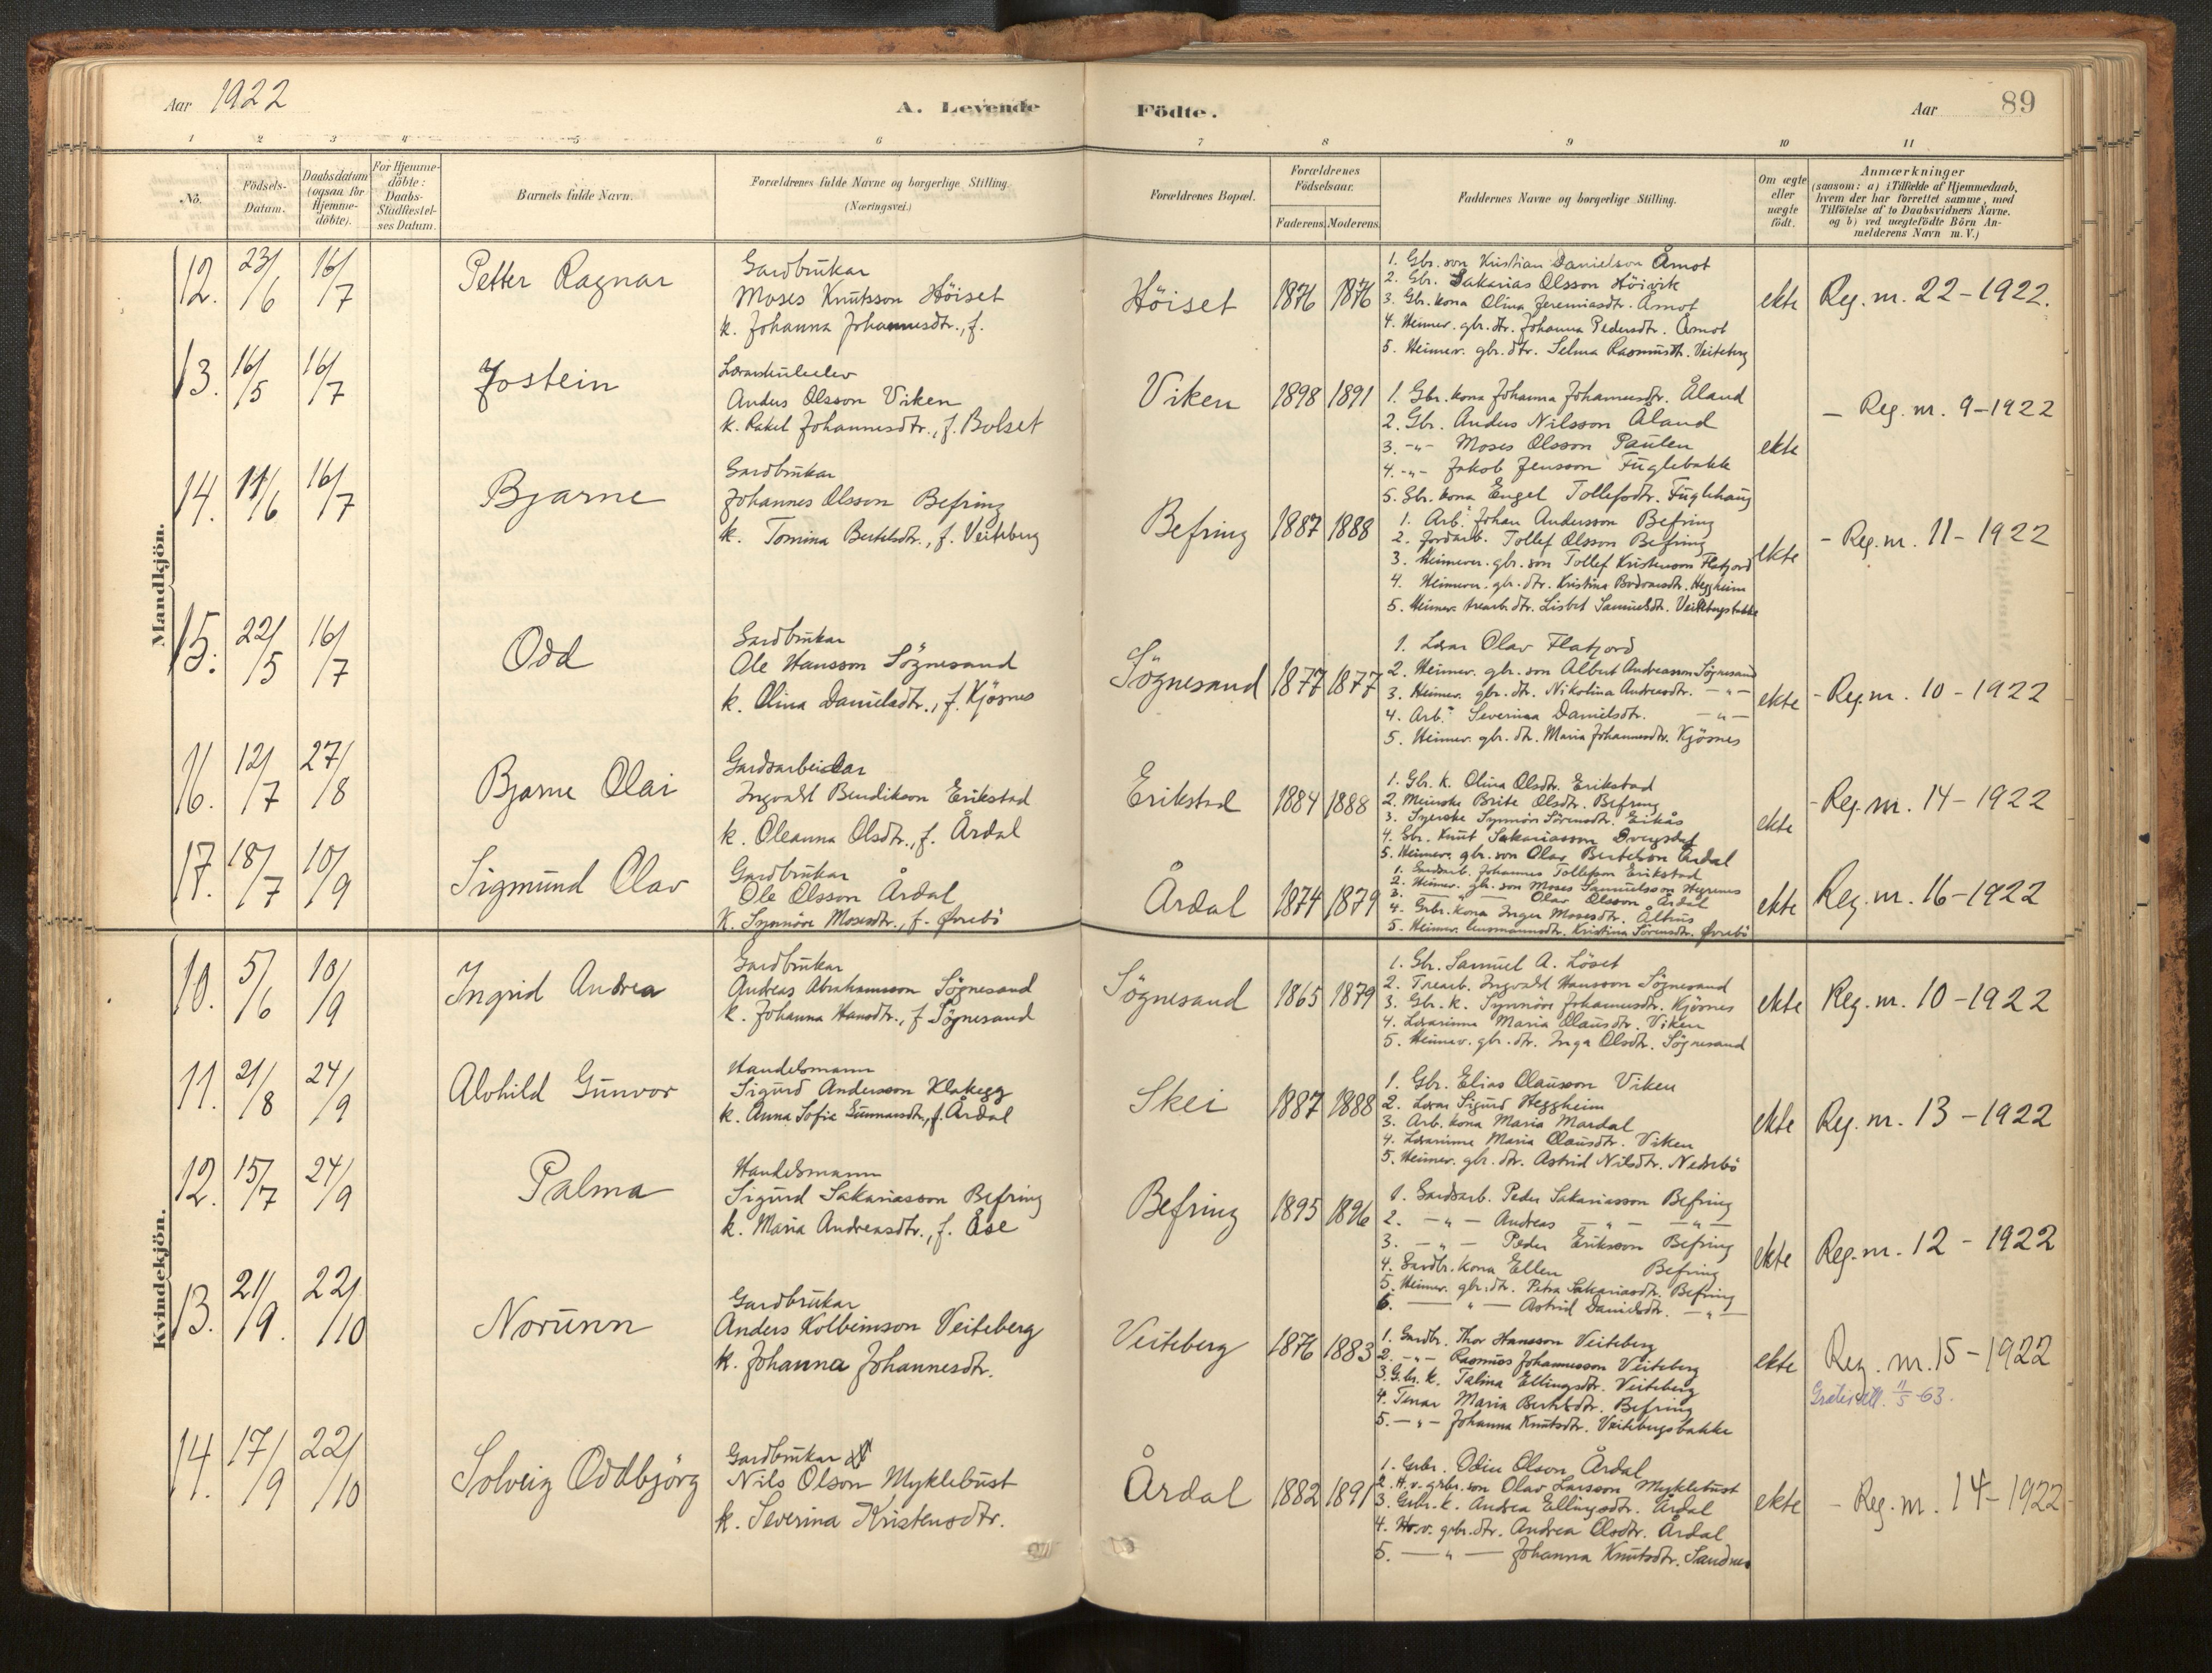 Aar 1922
A. Levende Födte.
Aar 89
1 2 3 4 5 6 7 8 9 10 11
No.
Födsels-Datum.
Daabsdatum (ogsaa for Hjemme-döbte).
For Hjemme-döbte: Daabs-Stadfæstel-ses Datum.
Barnets fulde Navn.
Forældrenes fulde Navne og borgerlige Stilling. (Næringsvei.)
Forældrenes Bopæl.
Forældrenes Födselsaar.
Faderens. Moderens.
Faddernes Navne og borgerlige Stilling.
Om ægte eller uægte födt.
Anmærkninger
(saasom: a) i Tilfælde af Hjemmedaab,
hvem der har forrettet samme, med
Tilföielse af to Daabsvidners Navne.
og b) ved uægtefödte Börn An-
melderens Navn m. V.)
Mandkjön.
12. 23/6 16/7 Petter Ragnar
Gardbrukar
Moses Knutsson Höiset
k. Johanna Johannesdtr., f.
Höiset 1876 1876
1. Gbr. son Kristian Danielson Åmot
2. Gbr. Sakarias Olsson Höivik
3. Gbr. kona Olina Jeremiasdtr. Åmot
4. Heimev. gbr. dtr. Johanna Pedersdtr. Åmot
5. Heimev. gbr. dtr. Selma Rasmusdtr. Veiteberg
ekte Reg. nr. 22-1922.
13. 16/5 16/7 Jostein
Lærarskuleelev
Anders Olsson Viken
k. Rakel Johannesdtr., f. Bolset
Viken 1898 1891
1. Gbr. kona Johanna Johannesdtr. Åland
2. Gbr. Anders Nilsson Åland
3. -"- Moses Olsson Paulen
4. -"- Jakob Jensson Fuglebakk
5. Gbr. kona Engel Tollefsdtr. Fuglehaug
ekte - Reg. nr. 9-1922
14. 11/6 16/7 Bjarne
Gardbrukar
Johannes Olsson Befring
k. Tomina Bertelsdtr., f. Veiteberg
Befring 1887 1888
1. Arb. Johan Andersson Befring
2. Jordarb. Tollef Olsson Befring
3. Heimever. gbr. son Tollef Kristenson Flatjord
4. Heimever. gbr. dtr. Kristina Bodvarsdtr. Heggheim
5. Heimev. trearb. dtr. Lisbet Samuelsdtr. Veitebergsbakke
ekte - Reg. nr. 11-1922
15. 22/5 16/7 Odd
Gardbrukar
Ole Hansson Sögnesand
k. Olina Danielsdtr., f. Kjösnes
Sögnesand 1877 1877
1. Lærar Olav Flatjord
2. Heimev. gbr. son Albert Andreasson Sögnesand
3. Heimev. gbr. dtr. Nikolina Andreasdtr. -"-
4. Arb. Severina Danielsdtr. -"-
5. Heimev. gbr. dtr. Maria Johannesdtr. Kjösnes
ekte - Reg. nr. 10-1922
16. 12/7 27/8 Bjarne Olai
Gardsarbeidar
Ingvald Bendikson Erikstad
k. Oleanna Olsdtr., f. Årdal
Erikstad 1884 1888
1. Gbr. k. Olina Olsdtr. Erikstad
2. Meierske Brite Olsdtr. Befring
3. Syerske Synnöv Sörensdtr. Eikås
4. Gbr. Knut Sakariasson Dvergsdal
5. Heimev. gbr. son Olav Bertelson Årdal
ekte - Reg. nr. 14-1922
17. 18/7 10/9 Sigmund Olav
Gardbrukar
Ole Olsson Årdal
K. Synnöve Mosesdtr., f. Øvrebö
Årdal 1874 1879
1. Gardsarb. Johannes Tollefson Erikstad
2. Heimev. gbr. son Moses Samuelsson
3. -"- Olav Olsson Årdal
4. Gbr. kona Inger Mosesdtr. Ålhus
5. Heimev. Kristina Sörensdtr. Øvrebö
ekte Reg. nr. 16-1922
Kvindekjön.
10. 5/6 10/9 Ingrid Andrea
Gardbrukar
Andreas Abrahamsson Sögnesand
k. Johanna Hansdtr., f Sögnesand
Sögnesand 1865 1879
1. Gbr. Samuel A. Löset
2. Trearb. Ingvald Hansson Sögnesand
3. Gbr. k. Synnöve Johannesdtr. Kjösnes
4. Lærarinne Maria Olausdtr. Viken
5. Heimev. gbr. dtr. Inga Olsdtr. Sögnesand
ekte Reg. nr. 10-1922
11. 21/8 24/9 Alvhild Gunvor
Handelsmann
Sigurd Anderson Klakegg
k. Anna Sofie Gunnarsdtr., f. Årdal
Skei 1887 1888
1. Gbr. Elias Olausson Viken
2. Lærar Sigurd Heggheim
3. Arb. kona Maria Mardal
4. Lærarinne Maria Olausdtr. Viken
5. Heimev. gbr. dtr. Astrid Nilsdtr. Nedrebö
ekte Reg. nr. 13-1922
12. 15/7 24/9 Palma
Handelsmann
Sigurd Sakariasson Befring
k. Maria Andreasdtr., f. Åse
Befring 1895 1896
1. Gardsarb. Peder Sakariasson Befring
2. -"- Andreas -"- -"-
3. -"- Peder Erikson Befring
4. Gardbr. kona Ellen Befring
5. Heimev. gbr. dtr. Petra Sakariasdtr. Befring
6. -"- Astrid Danielsdtr. -"-
ekte Reg. nr. 12-1922
13. 21/9. 22/10 Norunn
Gardbrukar
Anders Kolbeinson Veiteberg
k. Johanna Johannesdtr.
Veiteberg 1876 1883
1. Gardbr. Thor Hansson Veiteberg
2. -"- Rasmus Johannesson Veiteberg
3. Gbr. k. Talina Ellingsdtr. Veiteberg
4. Tenar Maria Bertelsdtr. Befring
5. -"- Johanna Knutsdtr. Veitebergsbakke
ekte Reg. nr. 15-1922
Gratis att. 11/5-63.
14. 17/9 22/10 Solveig Oddbjörg
Gardbrukar
Nils Olson Myklebust
k. Severina Kristensdtr.
Årdal 1882 1891
1. Grbr. Odin Olson Årdal
2. H.v. grbr. son Olav Larsson Myklebust
3. Grbr. k. Andrea Ellingsdtr. Årdal
4. H.v. grbr. dtr. Andrea Olsdtr. Årdal
5. -"- Johanna Knutsdtr. Sandnes
ekte - Reg. nr. 14-1922